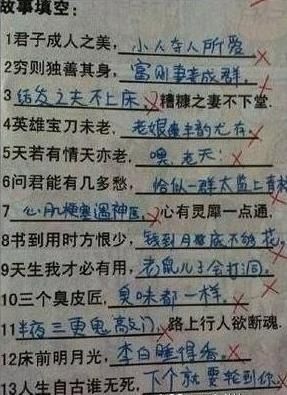 故事填空：
1君子成人之美，小人夺人所爱
2穷则独善其身，富则妻妾成群，
3结发之夫不上床，糟糠之妻不下堂.
4英雄宝刀未老，老娘风韵尤存，
5天若有情天亦老，嘿，老天：
6问君能有几多愁，恰似一群太监上青楼
7心肌梗塞遇神医，心有灵犀一点通，
8书到用时方恨少，钱到月底不够花，
9天生我才必有用，老鼠儿子会打洞，
10三个臭皮匠，臭味都一样，
11半夜三更鬼敲门，路上行人欲断魂.
12床前明月光，李白睡得香，
13人生自古谁无死，下个就要轮到你